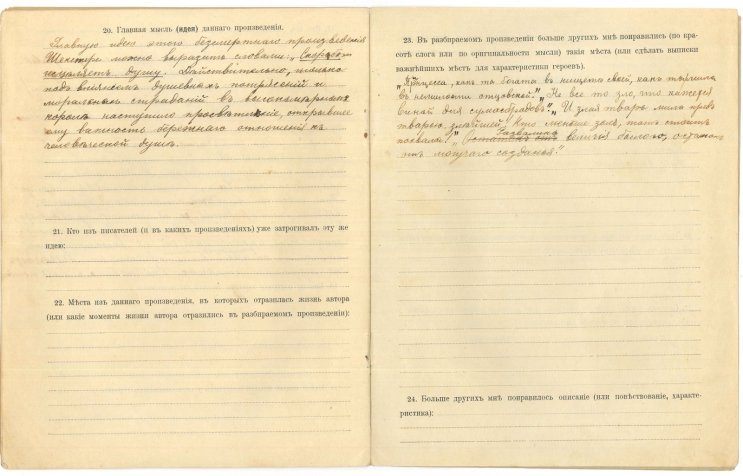 20. Главная мысль (идея) даннаго произведенія.
Главную идею этого безсмертнаго произведенія
Шекспира можно выразить словами: „Скорбь
исцѣляетъ душу. Дѣйствительно, только
подъ вліяніемъ душевныхъ потрясеній и
моральныхъ страданій въ
короля наступило просвѣтленіе, открывшее
ему важность бережнаго отношенія къ
человѣческой душѣ.
21. Кто изъ писателей (и въ какихъ произведеніяхъ) уже затрогивалъ эту же
идею:
22. Мѣста изъ даннаго произведенія, въ которыхъ отразилась жизнь автора
(или какіе моменты жизни автора отразились въ разбираемомъ произведеніи):
23. Въ разбираемомъ произведеніи больше другихъ мнѣ понравились (по кра-
сотѣ слога или по оригинальности мысли) такія мѣста (или сдѣлать выписки
важнѣйшихъ мѣстъ для характеристики героевъ).
„Принцесса, какъ ты богата въ нищетѣ своей, какъ
въ немилости отцовской." „Не все то зло, что кажется
виной для сумасбродовъ". „И злая тварь мила предъ
тварью злѣйшей, кто меньше золъ, тотъ стоитъ
похвалы". „Развалина
величья былого, остатокъ
могучаго созданья."
24. Больше другихъ мнѣ понравилось описаніе (или повѣствованіе, характе-
ристика):